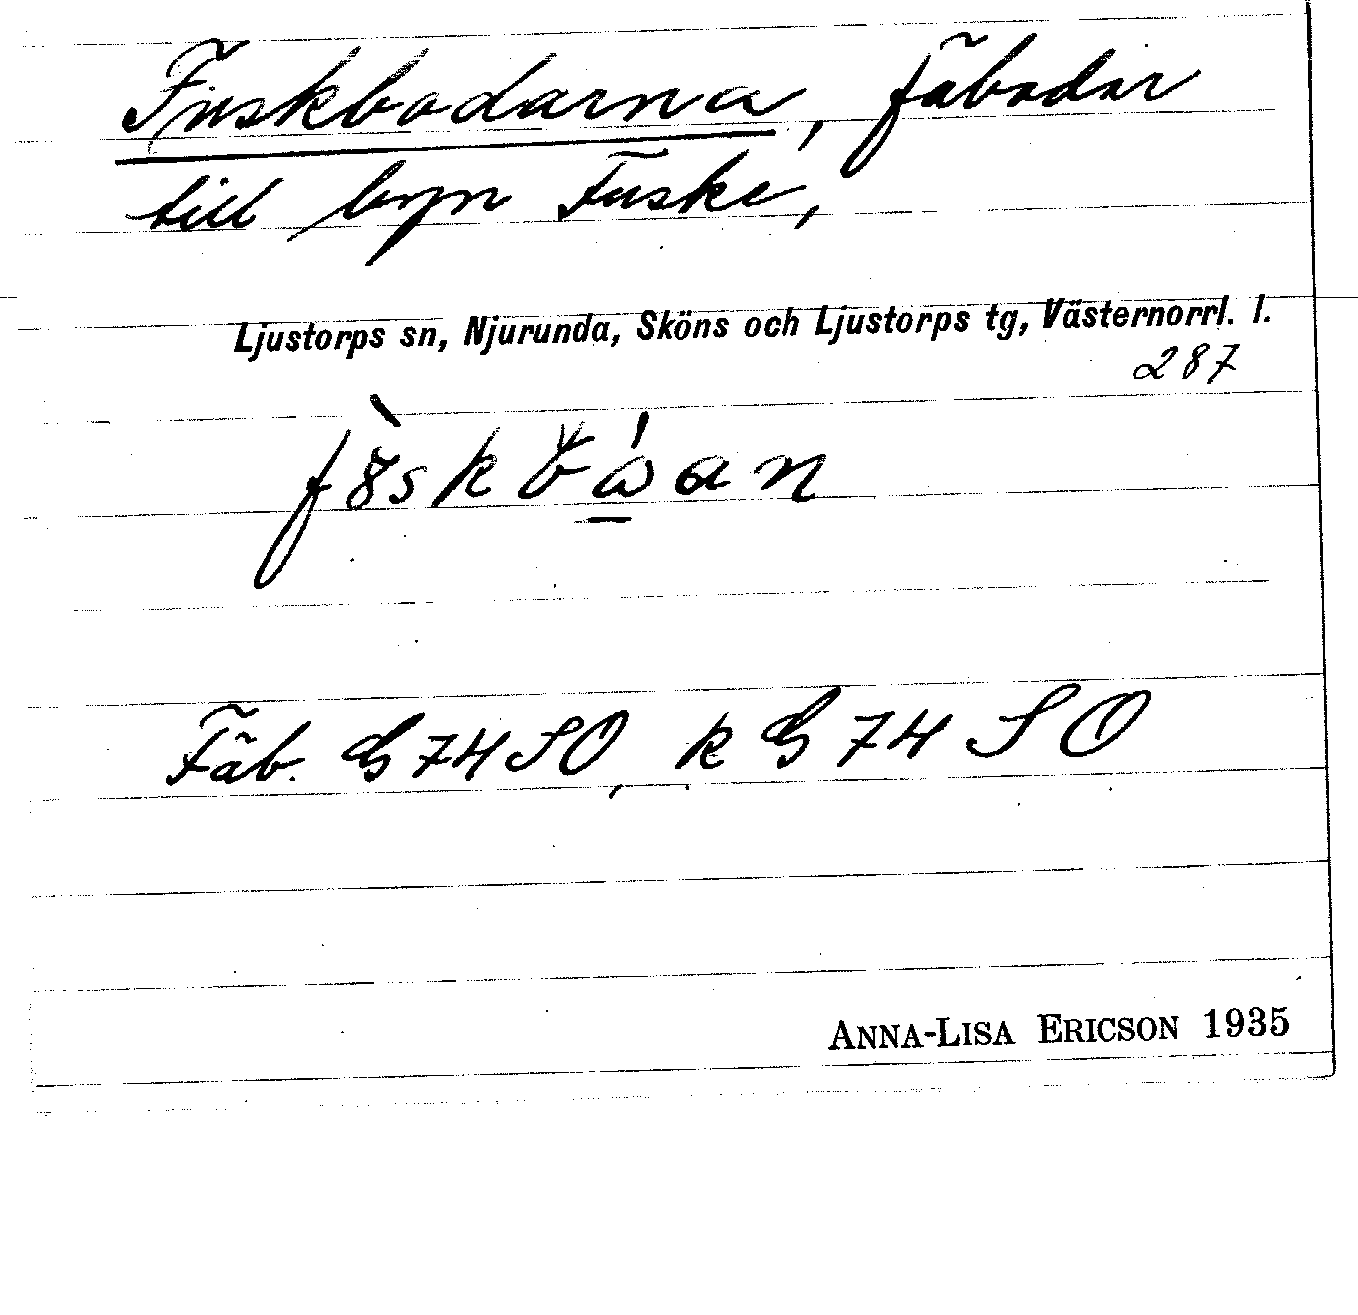 Fuskbodarna, fäbodar
till byn Fuske,
Ljustorps sn, Njurunda, Sköns och Ljustorps tg, Västernorrl. l.
287
Fäb. G 74 SO, k G 74 SO
ANNA-LISA ERICSON 1935